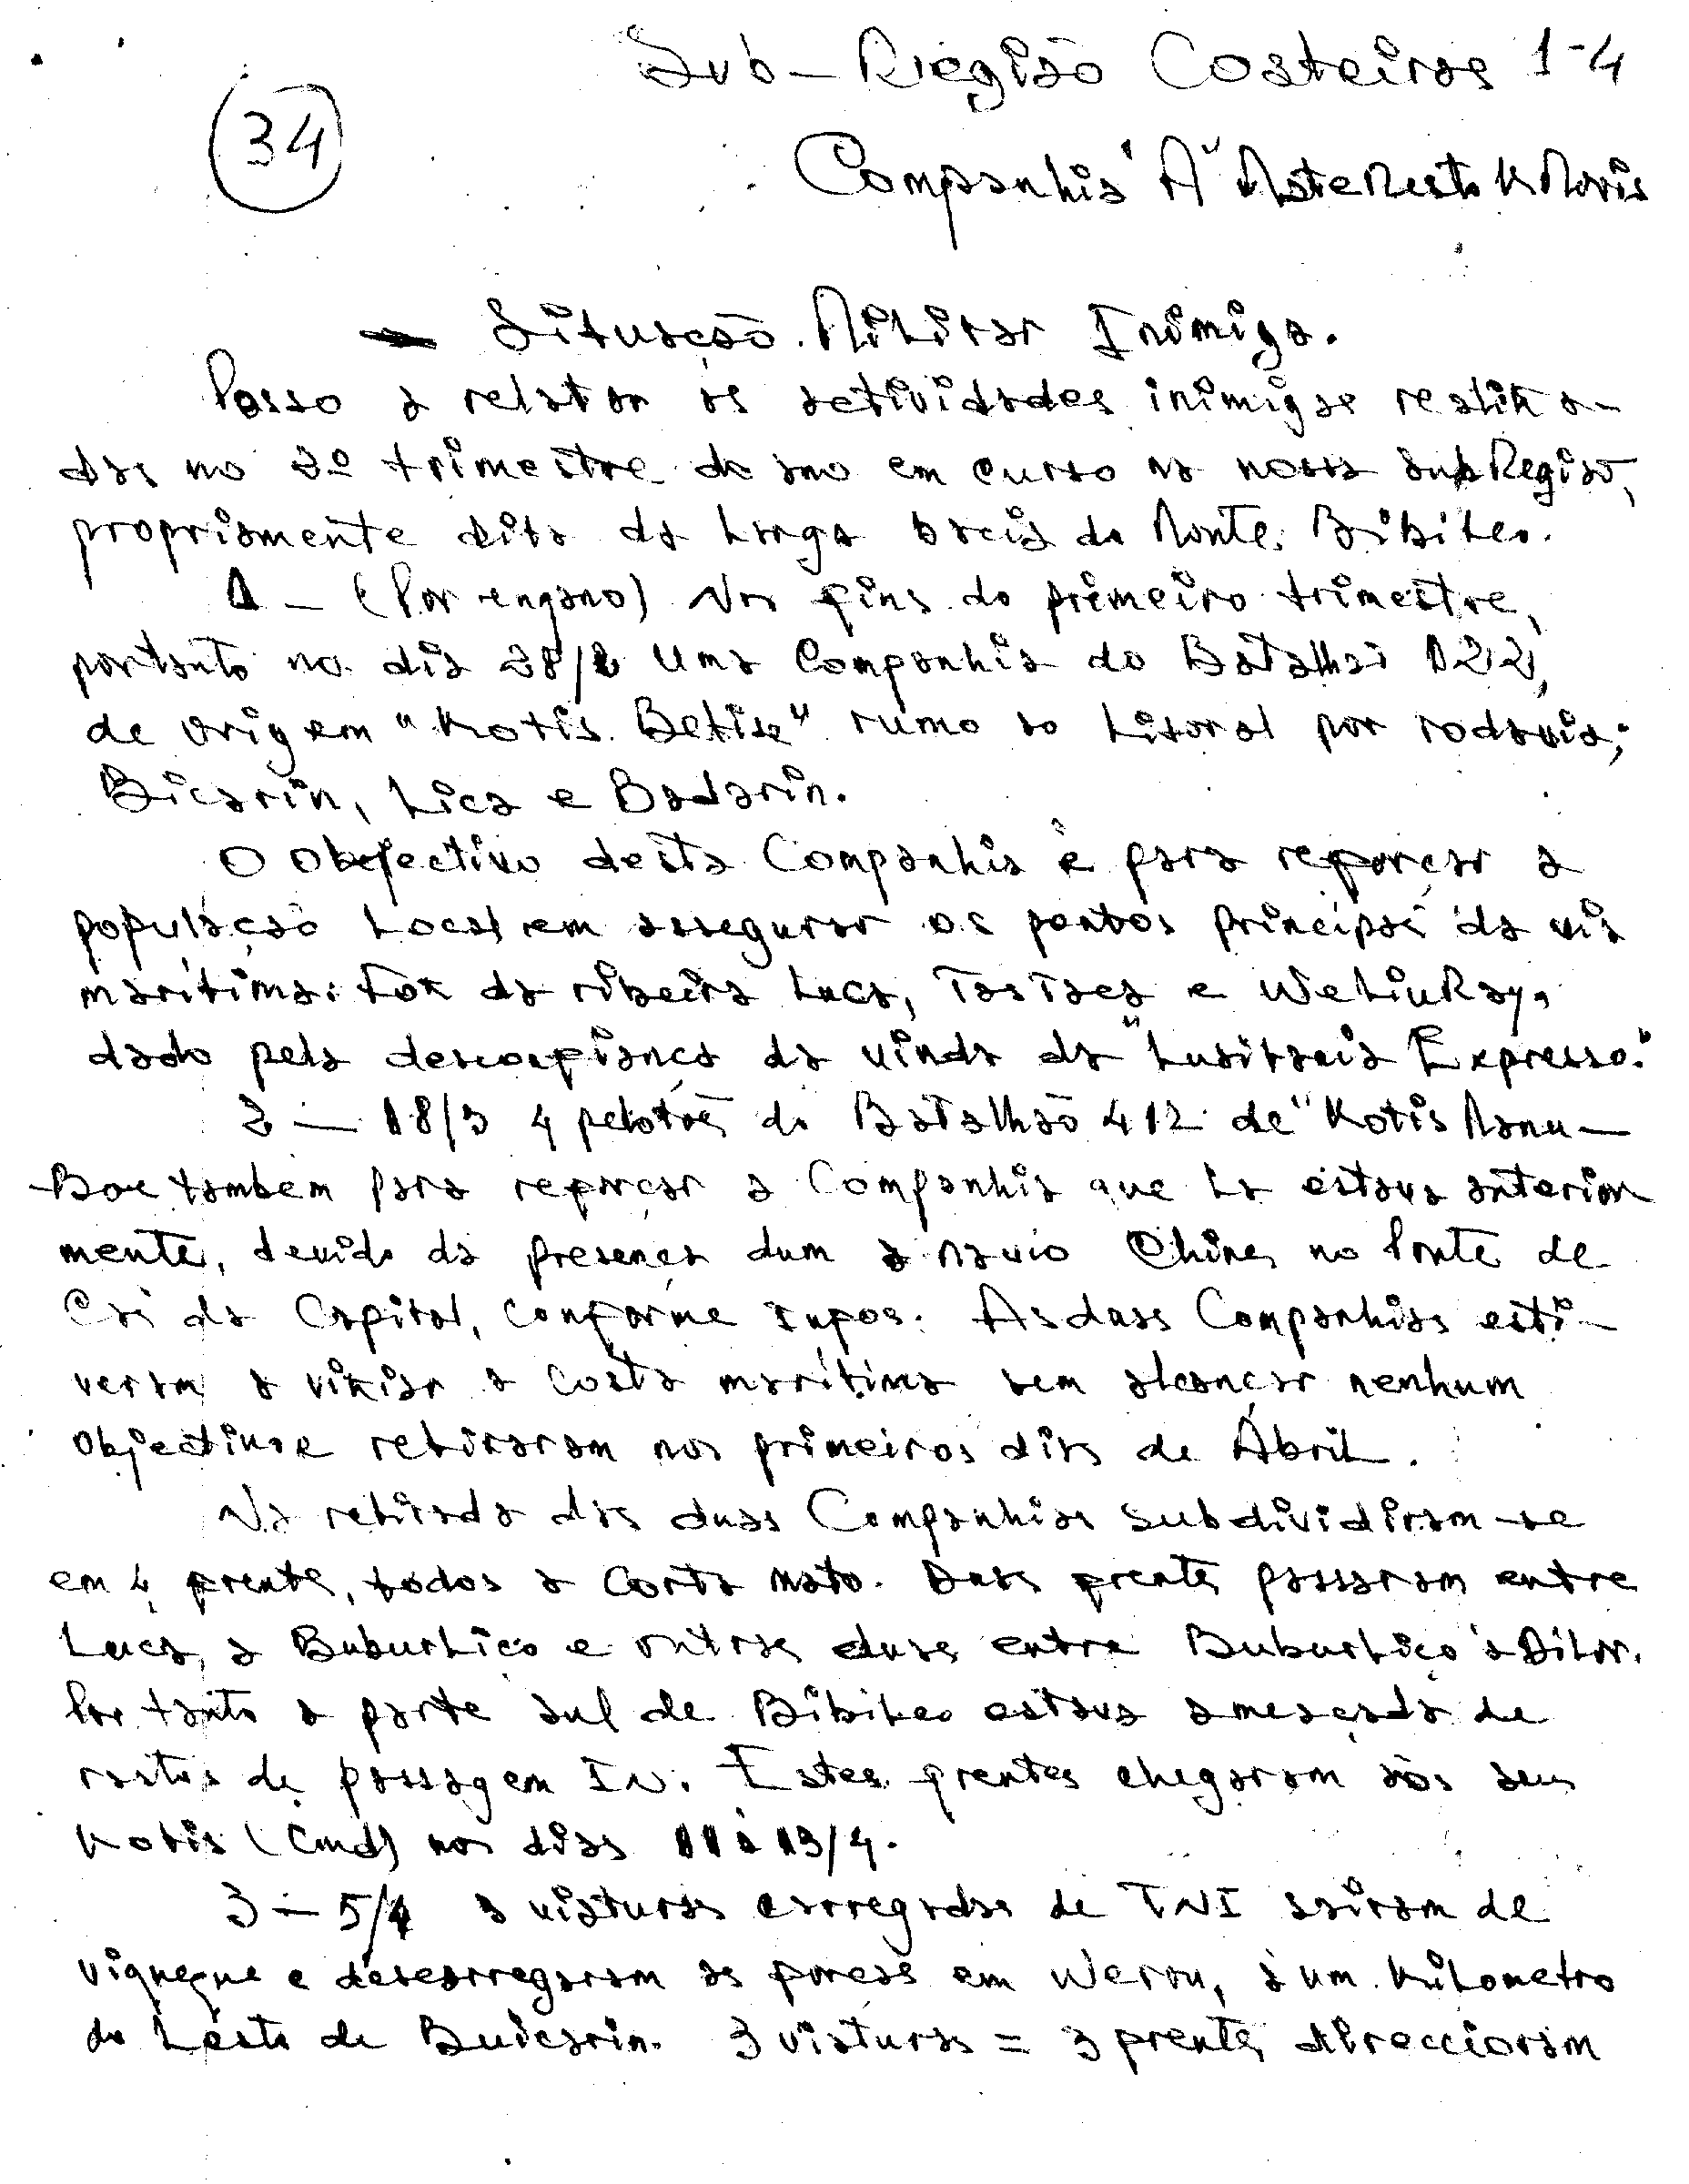 Sub-Região Costeiras 1-4
34
Companhia "A"
- Situação Militar Inimiga.
Passo a relatar as actividades inimigas realiza-
das no 2º trimestre do ano em curso na nossa subRegião,
propriamente dita da Larga bacia do Monte Bibileo.
1 - (Por engano) Nos fins do primeiro trimestre,
portanto no dia 28/2 Uma Companhia do Batalhão 122,
de origem "Kotis Betise" rumo ao Litoral por rodavia;
Bicarin, Lica e Badarin.
O Objectivo desta Companhia é para reforçar a
população Local em assegurar os pontos principais da via
marítima: Foz da ribeira Luca, Tastaca e WeLiuRay,
dado pela desconfiança da vinda da "Lusitania Expresso."
2 - 18/3 4 pelotões do Batalhão 412 de "Kotis Manu-
Boe tambem para reforçar a Companhia que La estava anterior
mente, devido da presença dum a navio Chines no Ponte de
Cai da Capital, conforme Infos. As duas Companhias esti-
veram a viziar a costa marítima sem alcançar nenhum
objectivo e retiraram nos primeiros dias de Ábril.
Na retirada das duas Companhias subdividiram-se
em 4 frentes, todos a Corta mato. Duas frentes passaram entre
Luca, a Buburlico e outras duas entre Buburlico a Dilor.
Por tanto a parte sul de Bibileo estava ameaçada de
rastos de passagem IN. Estes frentes chegaram aos seus
Kotis (Cmd) nos dias 11 a 13/4.
3 - 5/4 3 viaturas carregadas de TNI sairam de
viqueque e descarregaram as forças em Werou, à um Kilometro
do Leste de Buicarin. 3 viaturas = 3 frentes direccioram